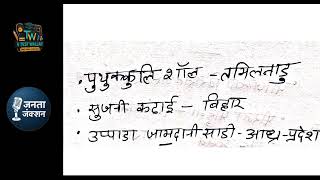 N TEST WALLAH
जनता
जंक्शन
• पुथुक्कुलि शॉल - तमिलनाडु
• सुजनी कढ़ाई - बिहार
• उप्पाडा जामदानी साडी - आन्ध्र-प्रदेश